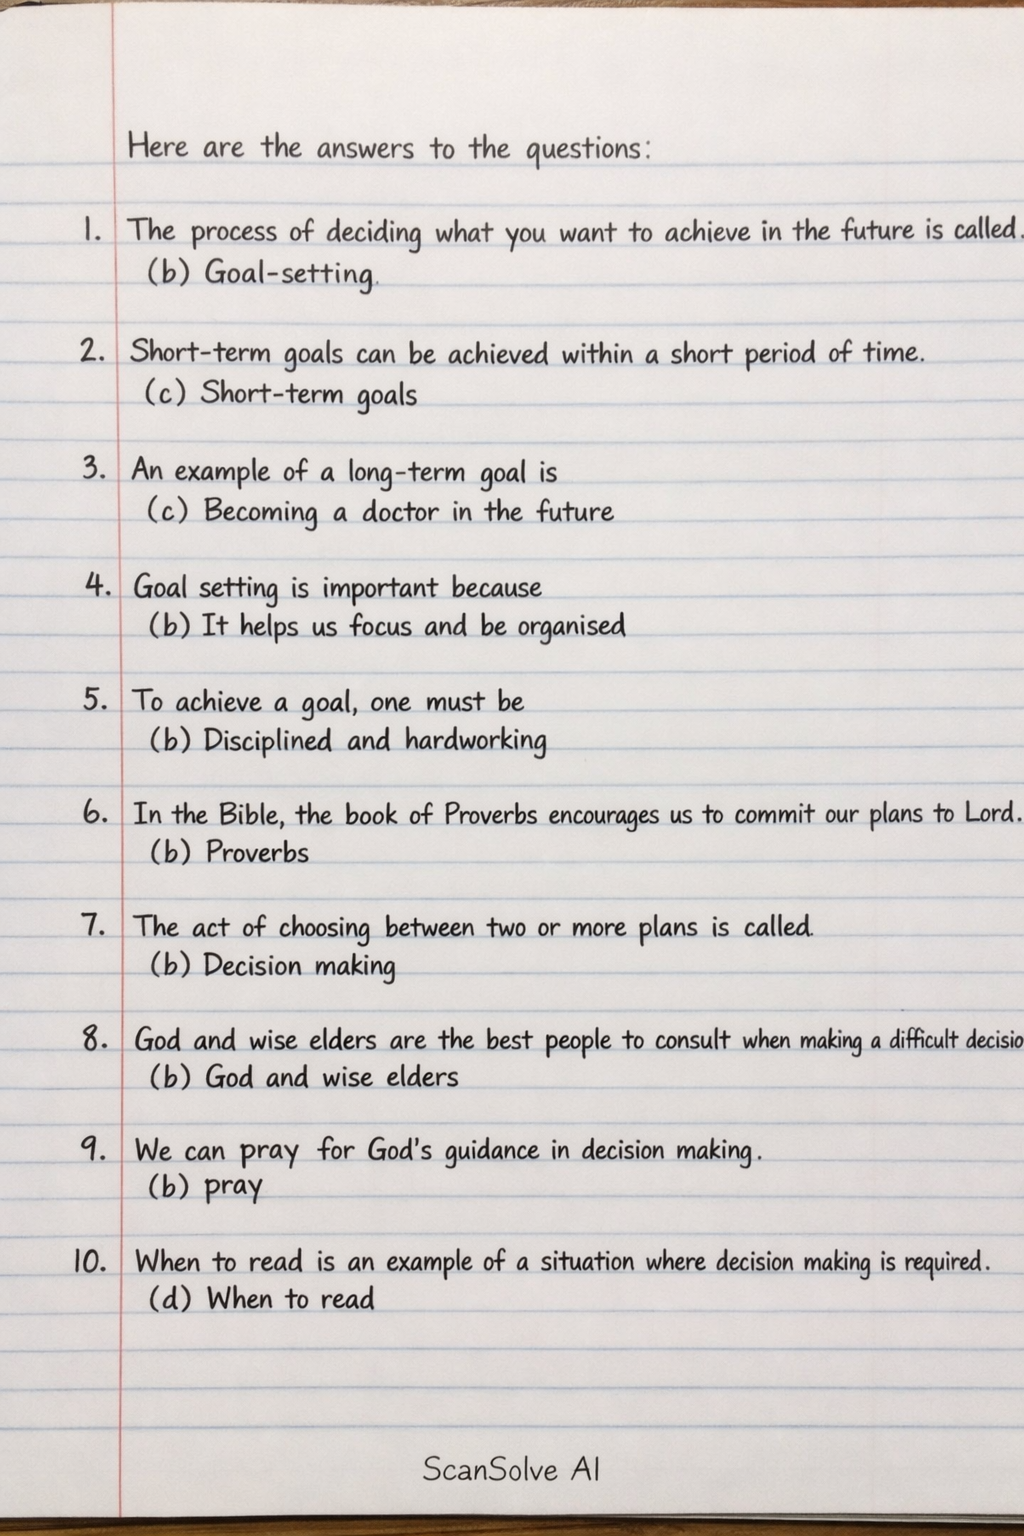 Here are the answers to the questions:
1. The process of deciding what you want to achieve in the future is called.
(b) Goal-setting.
2. Short-term goals can be achieved within a short period of time.
(c) Short-term goals
3. An example of a long-term goal is
(c) Becoming a doctor in the future
4. Goal setting is important because
(b) It helps us focus and be organised
5. To achieve a goal, one must be
(b) Disciplined and hardworking
6. In the Bible, the book of Proverbs encourages us to commit our plans to Lord.
(b) Proverbs
7. The act of choosing between two or more plans is called.
(b) Decision making
8. God and wise elders are the best people to consult when making a difficult decisio
(b) God and wise elders
9. We can pray for God's guidance in decision making.
(b) pray
10. When to read is an example of a situation where decision making is required.
(d) When to read
ScanSolve AI